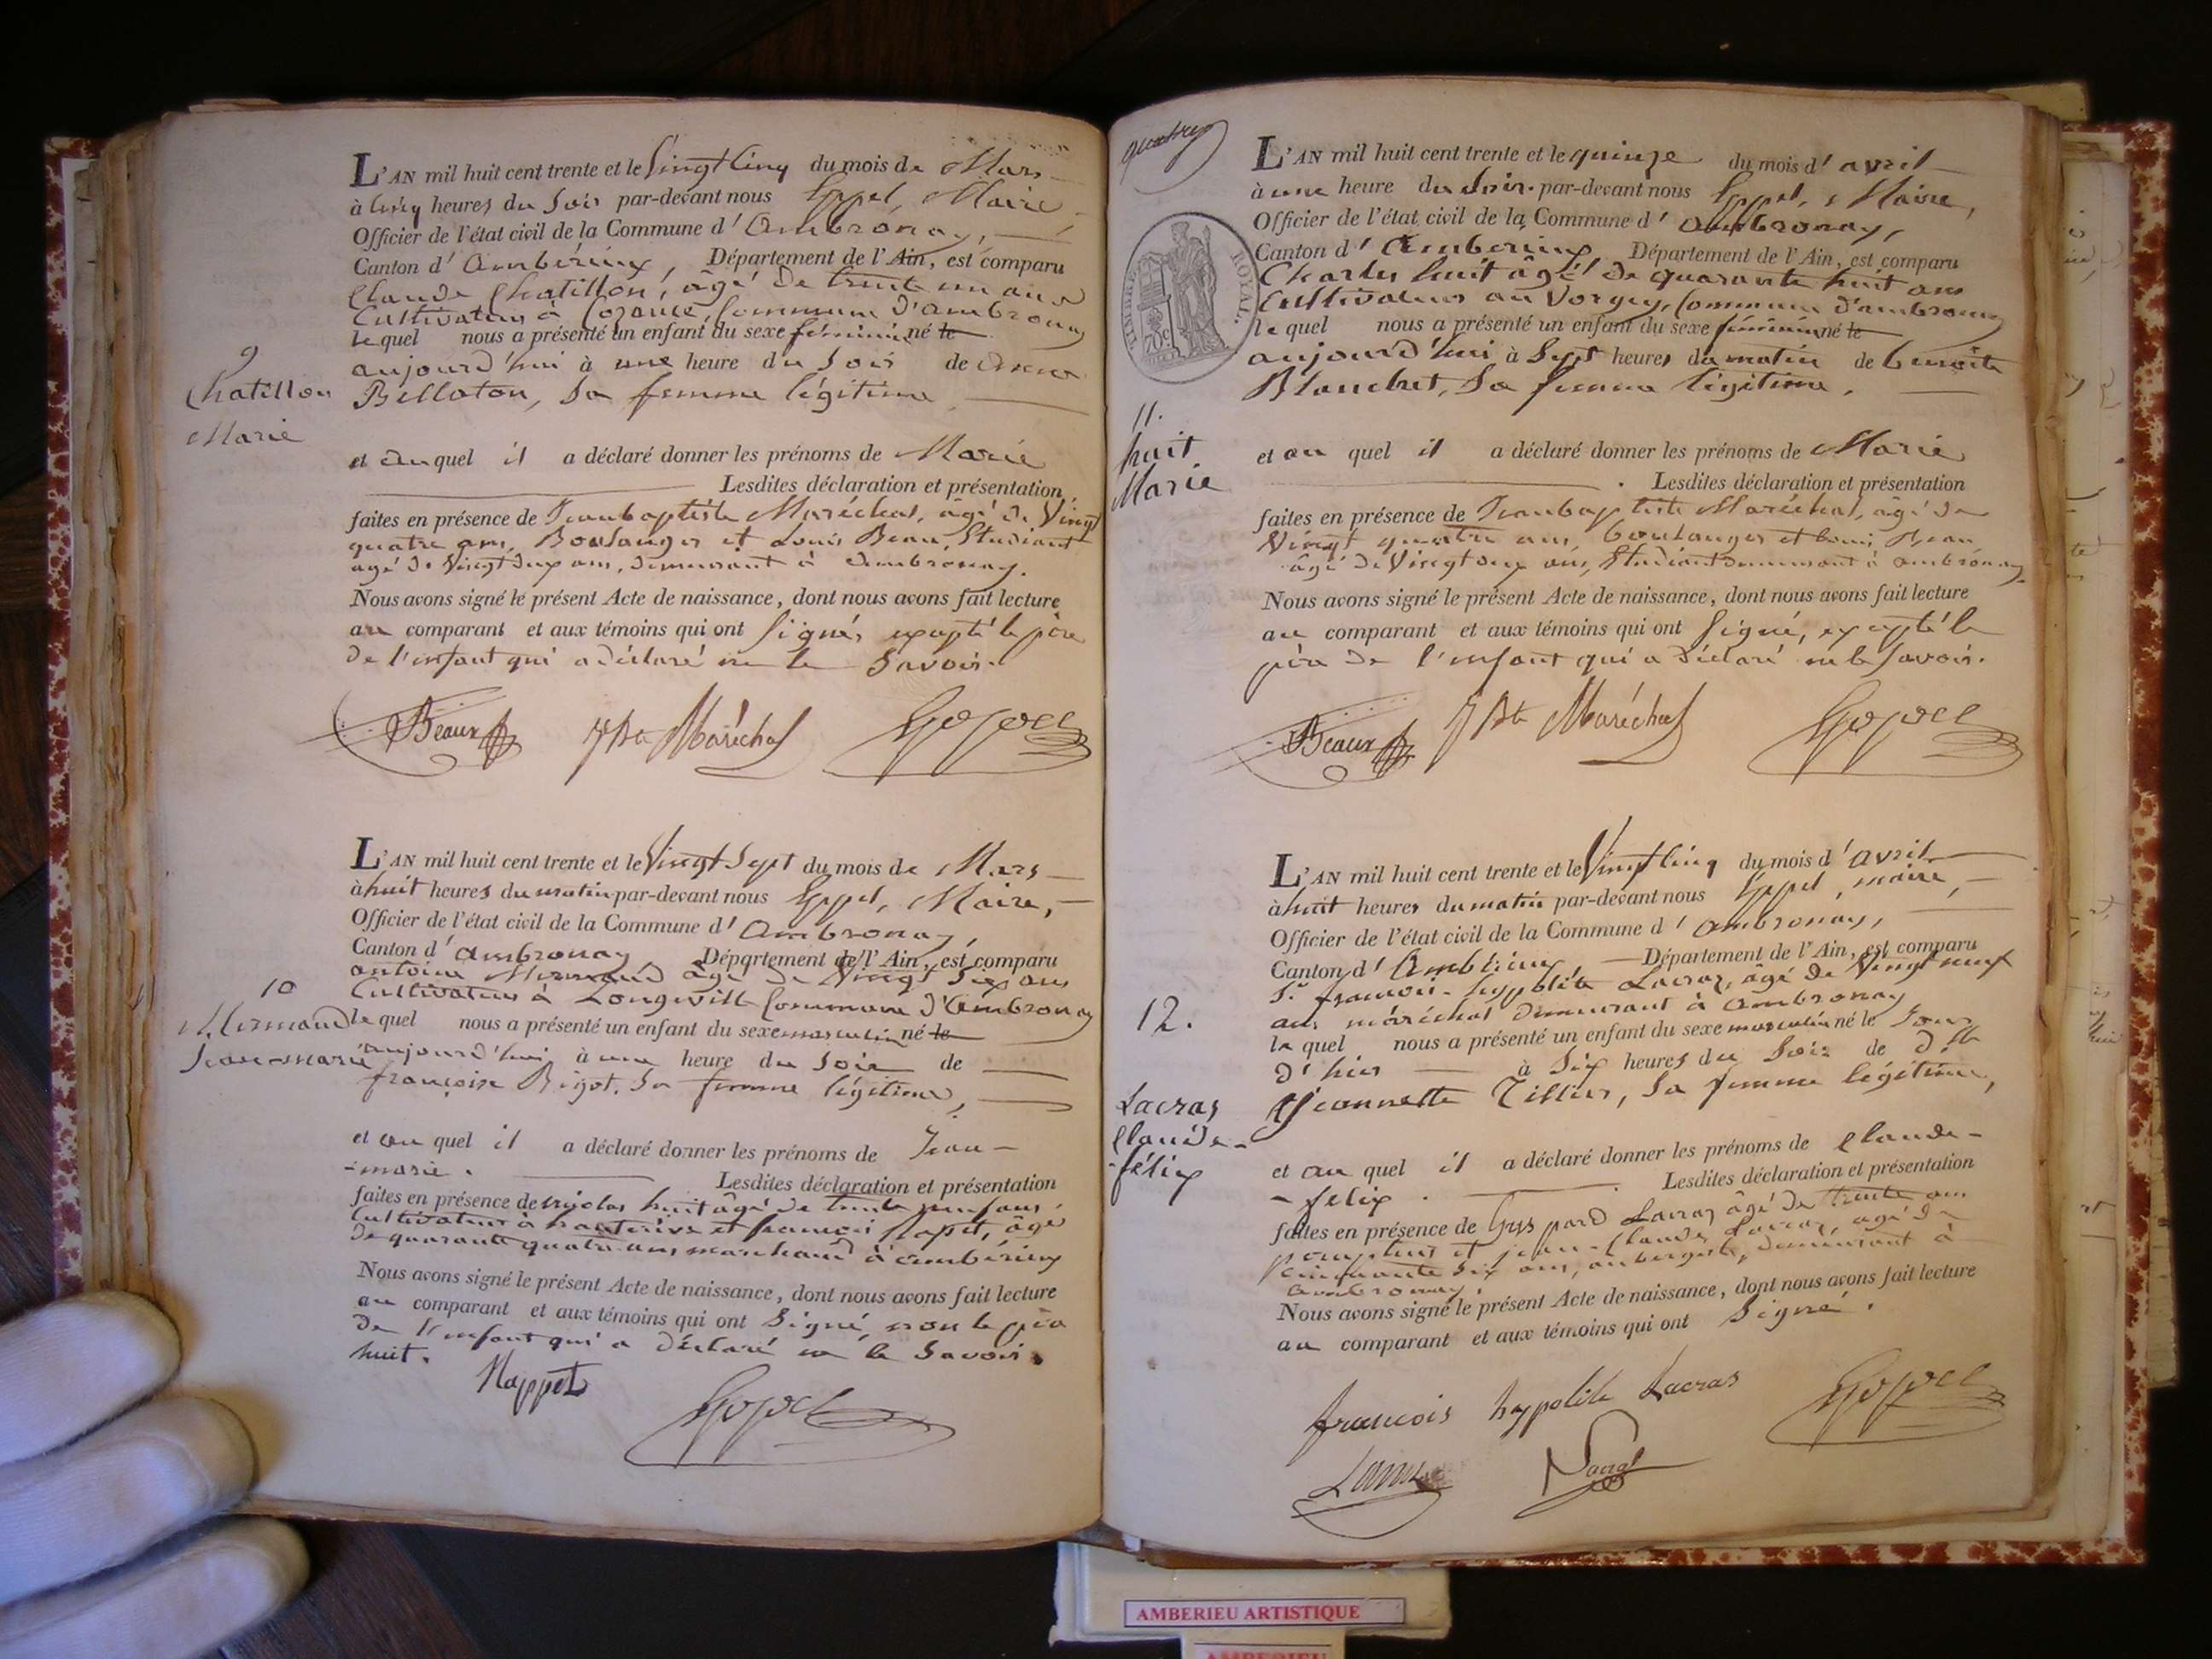 L'AN mil huit cent trente et le Vingt Cinq du mois de Mars
à Cinq heures du Soir par-devant nous Goppel, Maire
Officier de l'état civil de la Commune d'Ambronay,
Canton d'Ambérieux, Département de l'Ain, est comparu
Claude Chatillon, âgé de trente un ans
Cultivateur à Cozance, Commune d'ambronay
lequel nous a présenté un enfant du sexe féminin né le
aujourd'hui à une heure du Soir de
Bellaton, Sa femme légitime
9
Chatillon
Marie
et auquel il a déclaré donner les prénoms de Marie
Lesdites déclaration et présentation
faites en présence de Jeanbaptiste Maréchal, âgé de Vingt
quatre ans, Boulanger et Louis Beau, Etudiant
agé de Vingt deux ans, demeurant à ambronay.
Nous avons signé le présent Acte de naissance, dont nous avons fait lecture
au comparant et aux témoins qui ont Signés, excepté le père
de l'enfant qui a déclaré ne le Savoir.
Beaux JBte Maréchal
L'AN mil huit cent trente et le Vingt Sept du mois de Mars
à huit heures du matin par-devant nous Goppel, Maire,
Officier de l'état civil de la Commune d'Ambronay,
Canton d'ambronay Département de l'Ain, est comparu
antoine Mermand âgé de Vingt Six ans
Cultivateur à Longeville Commune d'Ambronay
10
Mermand
Jean-marie
lequel nous a présenté un enfant du sexe masculin né le
aujourd'hui à une heure du Soir de
françoise Bigot, Sa femme légitime,
et au quel il a déclaré donner les prénoms de Jean-
-marie.
Lesdites déclaration et présentation
faites en présence de nicolas huit âgé de trente ans,
Cultivateur à hauterive et françois âgé
de quarante quatre ans marchand à ambérieux
Nous avons signé le présent Acte de naissance, dont nous avons fait lecture
au comparant et aux témoins qui ont Signé, non le père
de l'enfant qui a déclaré ne le Savoir
huit.
Nappet
L'AN mil huit cent trente et le quinze du mois d'avril
à une heure du Soir par-devant nous Goppel, Maire,
Officier de l'état civil de la Commune d'ambronay,
Canton d'Ambérieux Département de l'Ain, est comparu
Charles huit âgé de quarante huit ans
Cultivateur au Vorgey, Commune d'ambronay
lequel nous a présenté un enfant du sexe féminin né le
aujourd'hui à Sept heures du matin de benoite
Blanchet, Sa femme légitime,
TIMBRE ROYAL
70c
11.
huit
Marie
et au quel il a déclaré donner les prénoms de Marie
Lesdites déclaration et présentation
faites en présence de Jeanbaptiste Maréchal, âgé de
Vingt quatre ans, boulanger et Louis Beau
âgé de Vingt deux ans, Etudiant demeurant à ambronay
Nous avons signé le présent Acte de naissance, dont nous avons fait lecture
au comparant et aux témoins qui ont Signé, excepté le
père de l'enfant qui a déclaré ne le Savoir.
Beaux JBte Maréchal
L'AN mil huit cent trente et le Vingt Cinq du mois d'avril
à huit heures du matin par-devant nous Goppel, maire,
Officier de l'état civil de la Commune d'ambronay,
Canton d'Ambérieux Département de l'Ain, est comparu
Sr. françois-hyppolite Lacraz, âgé de Vingt neuf
ans, maréchal demeurant à ambronay
12.
lequel nous a présenté un enfant du sexe masculin né le Jour
d'hier à Six heures du Soir de
Jeannette Tillier, Sa femme légitime,
Lacras
Claude-
-félix
et au quel il a déclaré donner les prénoms de Claude-
-felix.
Lesdites déclaration et présentation
faites en présence de Lacraz âgé de trente ans
et jean-Claude Lacraz, agé de
cinquante Six ans, aubergiste, demeurant à
ambronay.
Nous avons signé le présent Acte de naissance, dont nous avons fait lecture
au comparant et aux témoins qui ont Signé.
francois hyppolite Lacras
AMBERIEU ARTISTIQUE
AMBERIEU